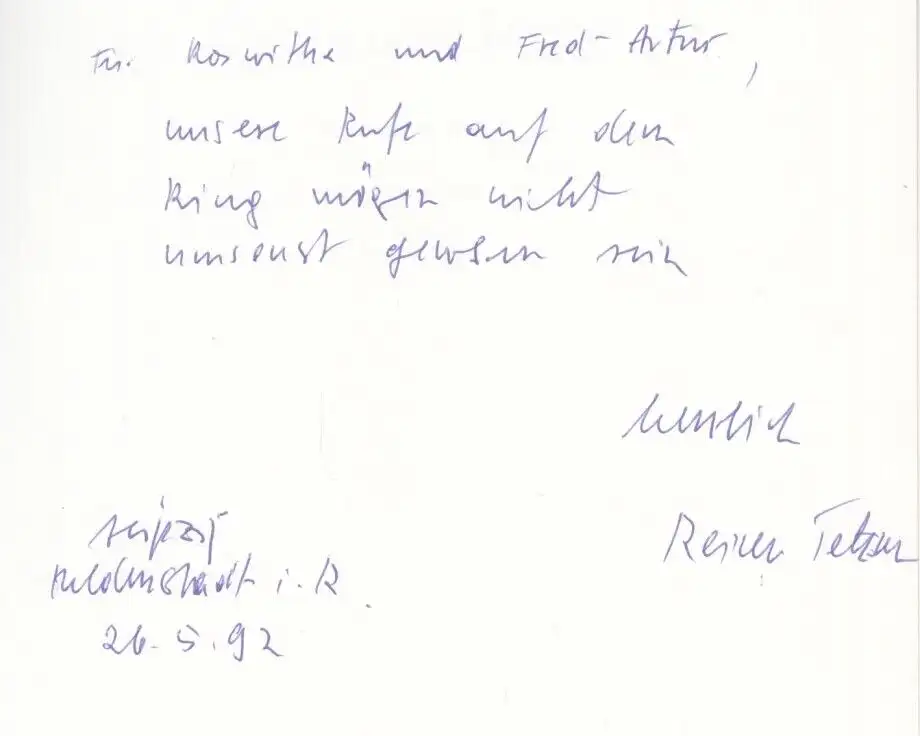 Für Roswitha und Fred-Artur,
unsere Rufe auf dem
Ring mögen nicht
umsonst gewesen sein
herzlich
Reiner Tetzner
Leipzig
Heldenstadt i. R.
26.5.92